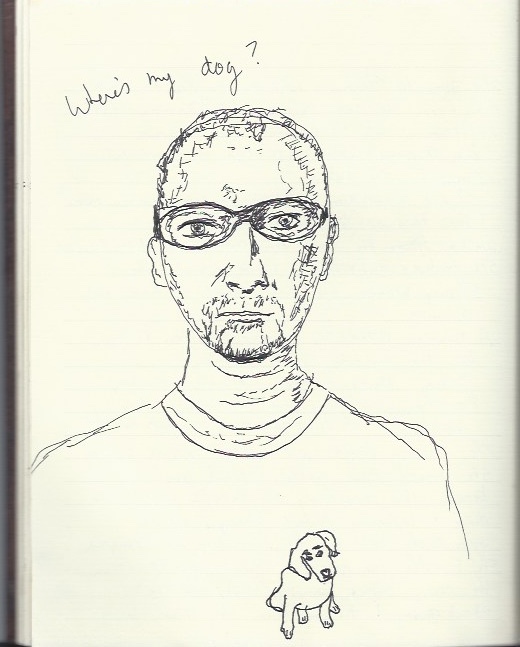 Where's my dog?